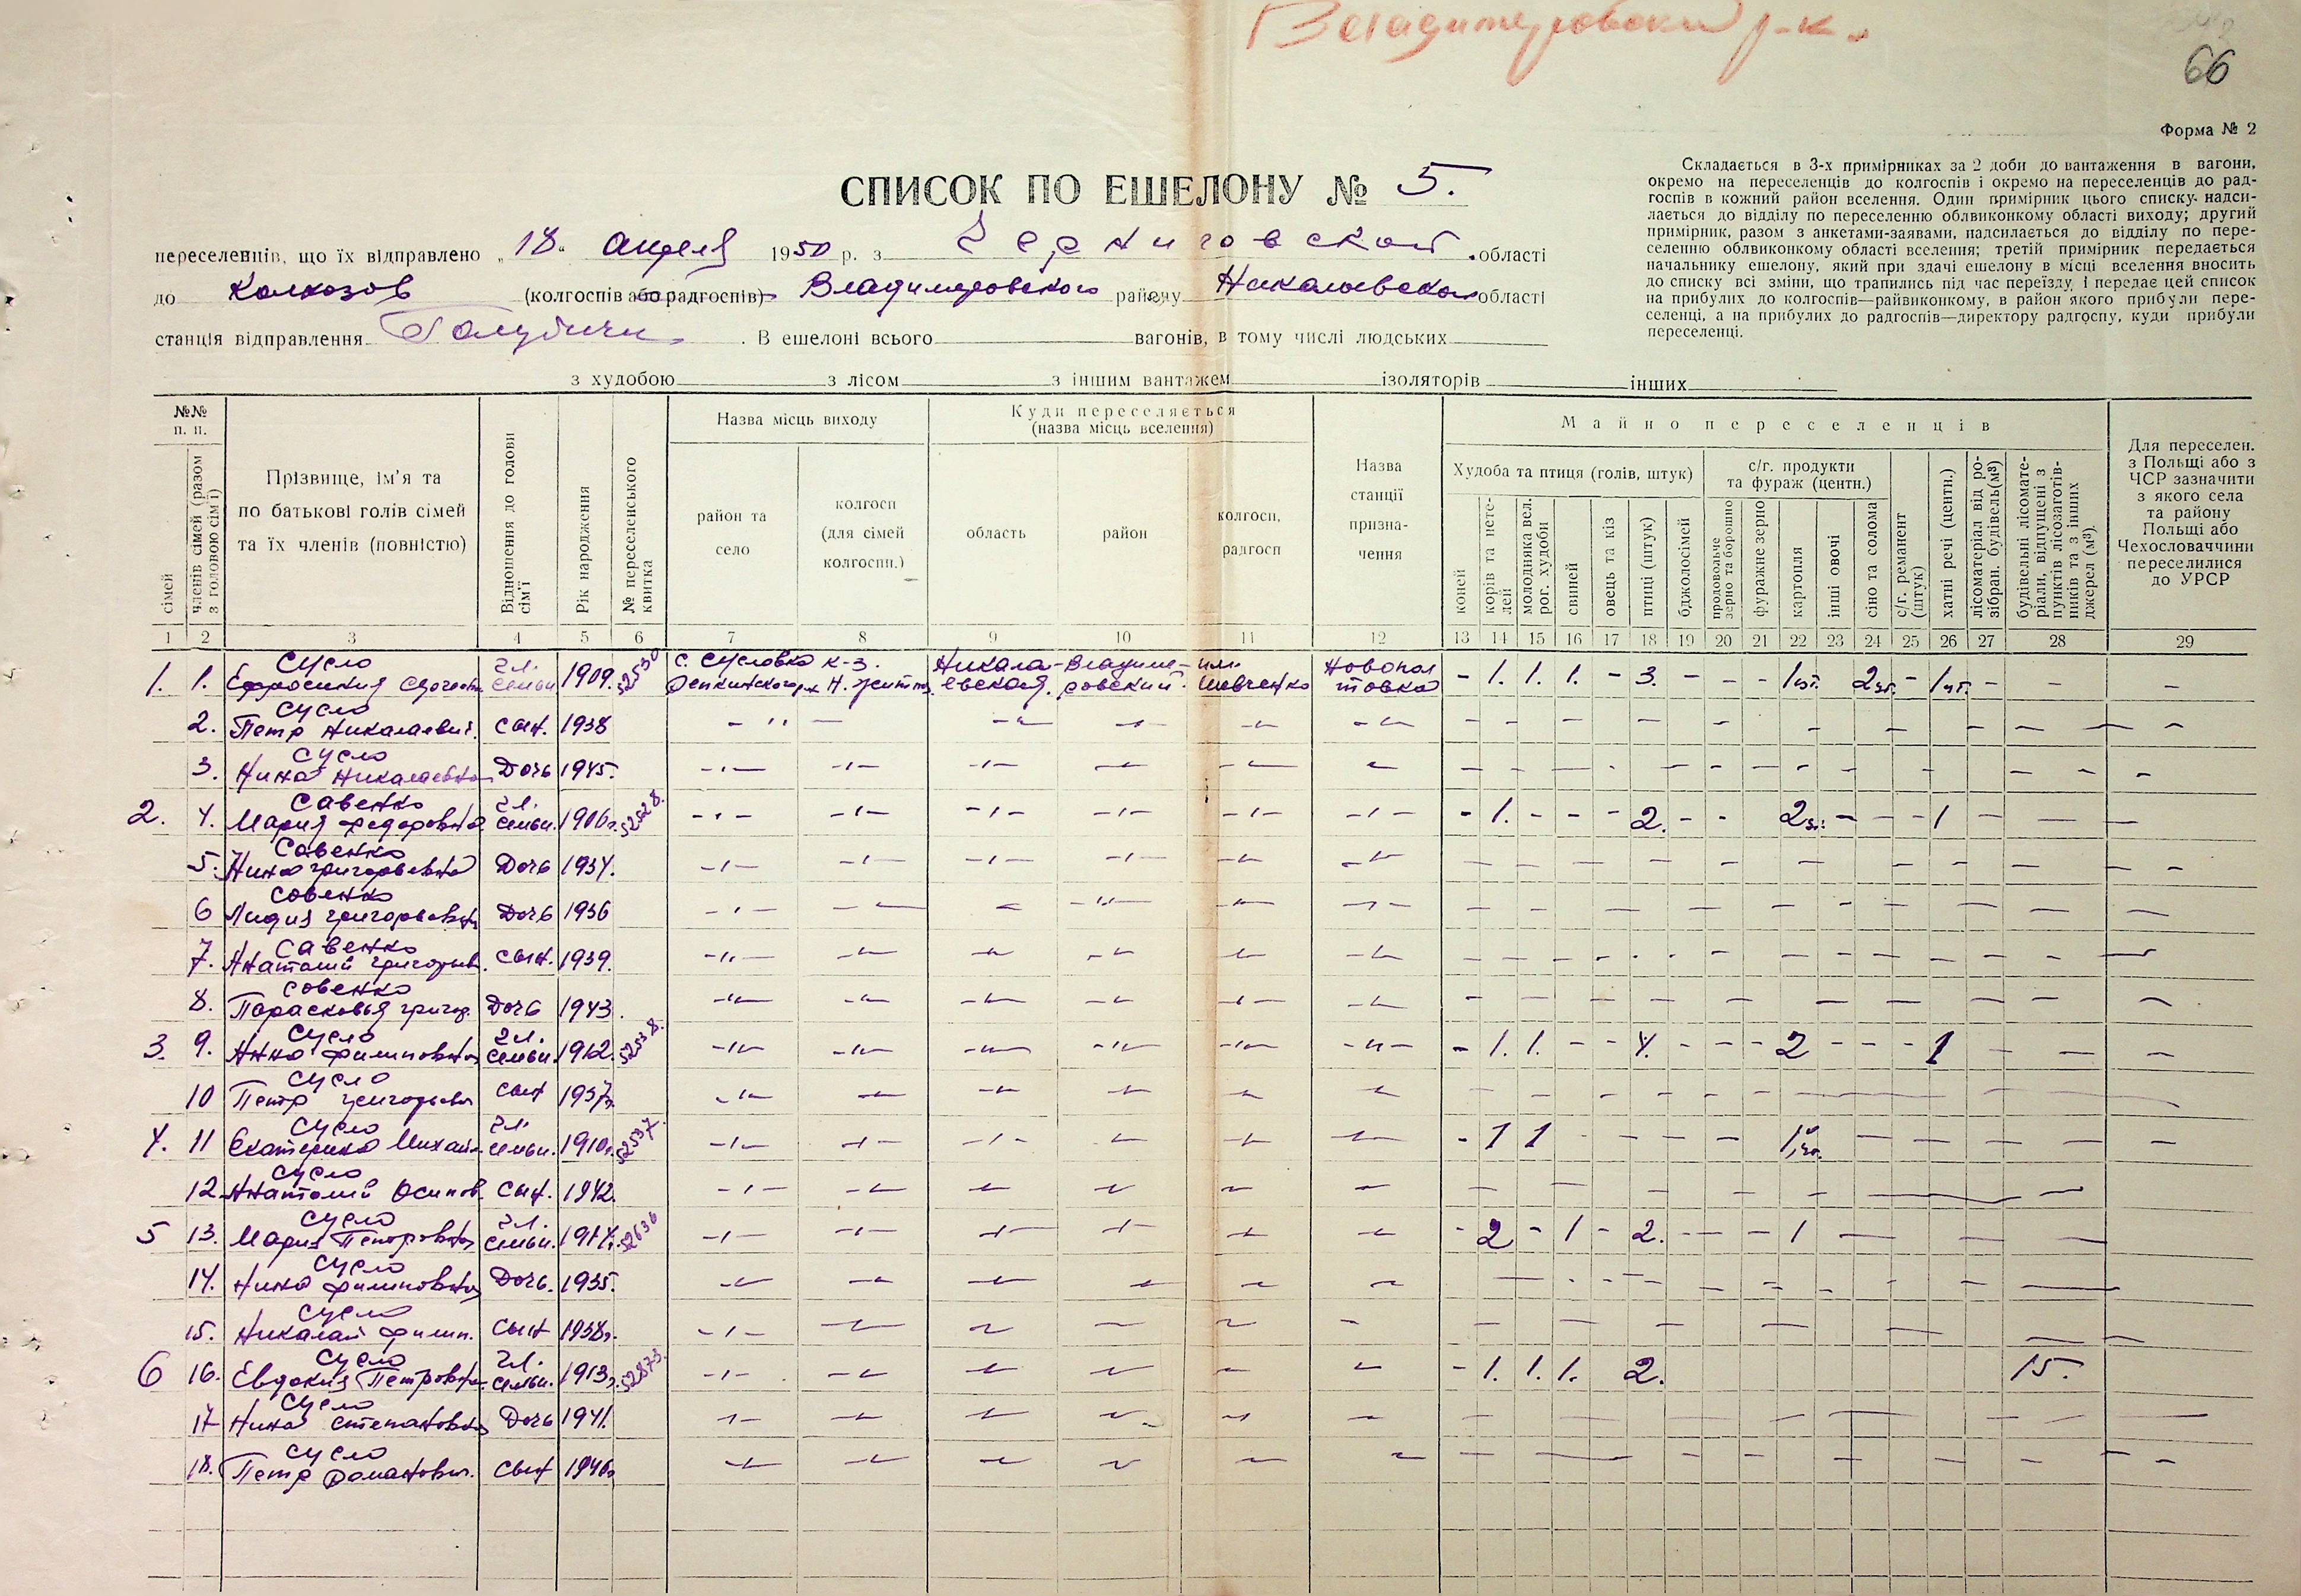 Владимировский р-н.
66
Форма № 2
СПИСОК ПО ЕШЕЛОНУ № 5.
Складається в 3-х примірниках за 2 доби до вантаження в вагони,
окремо на переселенців до колгоспів і окремо на переселенців до рад-
госпів в кожний район вселення. Один примірник цього списку надси-
лається до відділу по переселенню облвиконкому області виходу; другий
примірник, разом з анкетами-заявами, надсилається до відділу по пере-
селенню облвиконкому області вселення; третій примірник передається
начальнику ешелону, який при здачі ешелону в місці вселення вносить
до списку всі зміни, що трапились під час переїзду, і передає цей список
на прибулих до колгоспів—райвиконкому, в район якого прибули пере-
селенці, а на прибулих до радгоспів—директору радгоспу, куди прибули
переселенці.
переселенців, що їх відправлено „18" апреля 1950 р. з Черниговской області
до Колхозов (колгоспів або радгоспів) Владимировского району Николаевской області
станція відправлення Голубичи. В ешелоні всього вагонів, в тому числі людських
з худобою з лісом з іншим вантажем ізоляторів інших
№№ п. п.
сімей
членів сімей (разом з головою сім'ї)
Прізвище, ім'я та
по батькові голів сімей
та їх членів (повністю)
Відношення до голови сім'ї
Рік народження
№ переселенського квитка
Назва місць виходу
район та
село
колгосп
(для сімей
колгоспн.)
Куди переселяється
(назва місць вселення)
область
район
колгосп,
радгосп
Назва
станції
призна-
чення
Майно переселенців
Худоба та птиця (голів, штук)
коней
корів та нете-
лей
молодняка вел.
рог. худоби
свиней
овець та кіз
птиці (штук)
бджолосімей
с/г. продукти
та фураж (центн.)
продовольче
зерно та борошно
фуражне зерно
картопля
інші овочі
сіно та солома
с/г. реманент
(штук)
хатні речі (центн.)
лісоматеріал від ро-
зібран. будівель(м³)
будівельні лісомате-
ріали, відпущені з
пунктів лісозаготів-
ників та з інших
джерел (м³).
Для переселен.
з Польщі або з
ЧСР зазначити
з якого села
та району
Польщі або
Чехословаччини
переселилися
до УРСР
1 2 3 4 5 6 7 8 9 10 11 12 13 14 15 16 17 18 19 20 21 22 23 24 25 26 27 28 29
Сусло гл. с. Сусловка к-з. Никола- Владими- им. Новопол
1. 1. семьи 1909. 52530 евская. ровский. Шевченко товка - 1. 1. 1. - 3. - - - 1 - 2 - 1 - - -
Сусло
2. Петр Николаевич. сын. 1938 - " -
Сусло
3. Нина Николаевна Дочь 1945.
Савенко гл.
2. 4. Мария Федоровна семьи. 1906г. - 1. - - - 2. - - 2 - - - 1 - - -
Савенко
5. Нина Григорьевна Дочь 1934.
Совенко
6 Лидия Григорьевна Дочь 1936
Савенко
7. Анатолий Григорьев. сын. 1939.
Совенко
8. Парасковья Григор. Дочь 1943.
Сусло гл.
3. 9. Анна Филиповна семьи. 1912. 52538. - 1. 1. - - 4. - - - 2 - - - 1 - - -
Сусло
10 Петр Григорьев сын 1937г.
Сусло гл.
4. 11 Екатерина Михайл. семьи. 1910г. 52537. - 1 1 - - - -
Сусло
12 Анатолий Осипов. сын. 1942.
Сусло гл.
5 13. Мария семьи. 52636 - 2 - 1 - 2. - - - 1 - - -
Сусло
14. Нина Филиповна Дочь. 1935.
Сусло
15. Николай Филип. сын 1938г.
Сусло гл.
6 16. Евдокия Петровна семьи. 1913г. 52873. - 1. 1. 1. 2. 15.
Сусло
17 Нина Степановна Дочь 1941.
Сусло
18. Петр сын 1946г